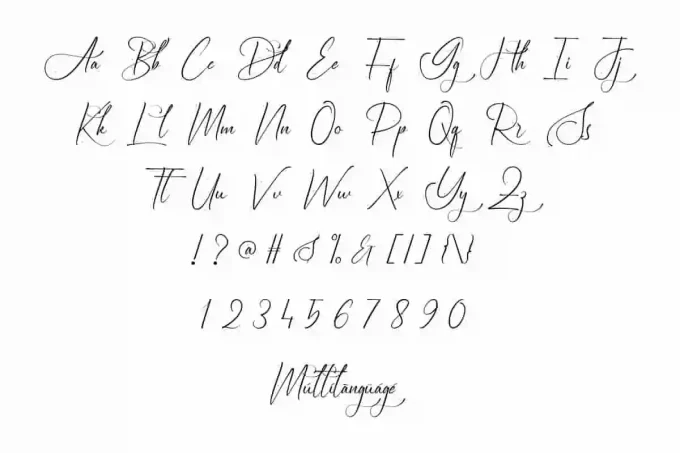 Aa Bb Cc Dd Ee Ff Gg Hh Ii Jj
Kk Ll Mm Nn Oo Pp Qq Rr Ss
Tt Uu Vv Ww Xx Yy Zz
! ? @ # $ % & [ | ] { \ }
1 2 3 4 5 6 7 8 9 0
Múltîlāngüágé